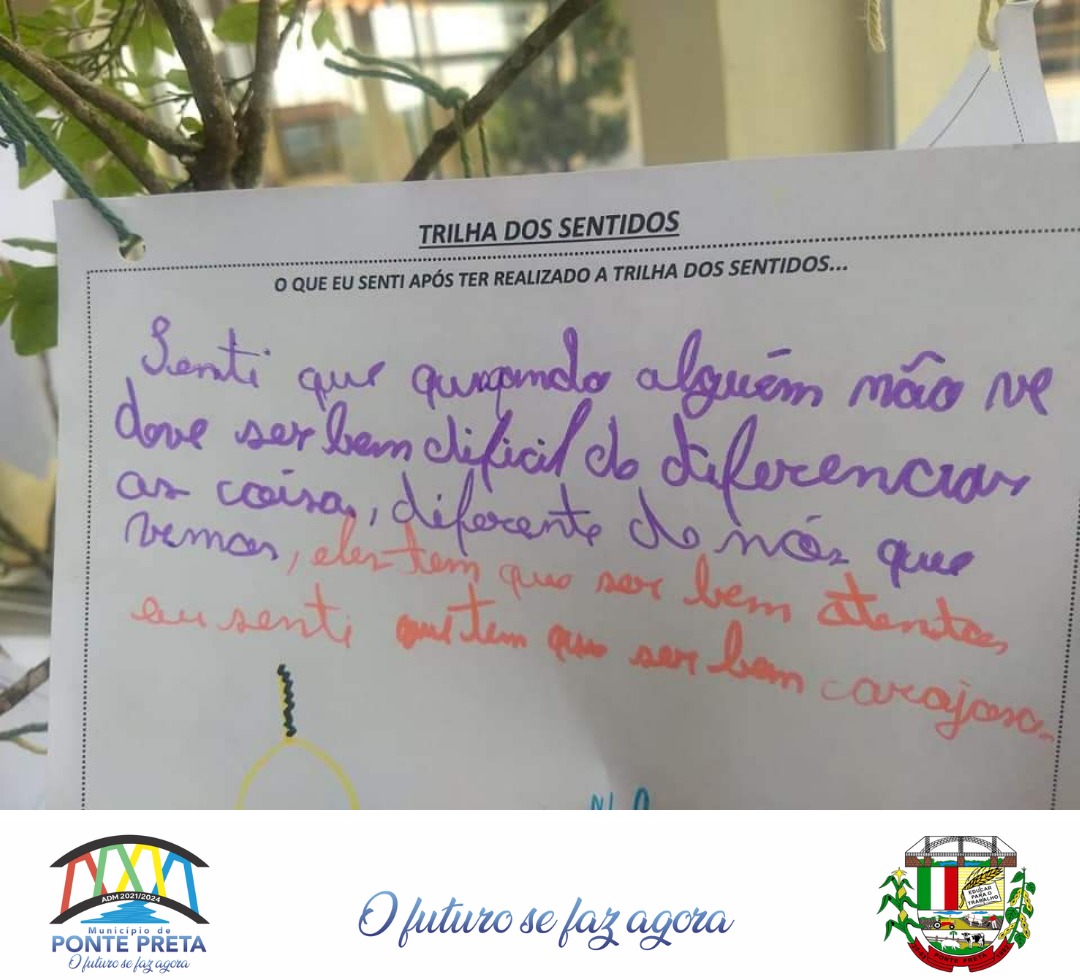 TRILHA DOS SENTIDOS
O QUE EU SENTI APÓS TER REALIZADO A TRILHA DOS SENTIDOS...
Senti que quando alguém não ve
dove ser bem dificil do diferenciar
as coisa, diferente do nós que
vemos, eles tem que ser bem atentos,
eu senti que tem que ser bem corajoso.
ADM 2021/2024
Município de
PONTE PRETA
O futuro se faz agora
O futuro se faz agora
EDUCAR
PARA O
TRABALHO
PONTE PRETA